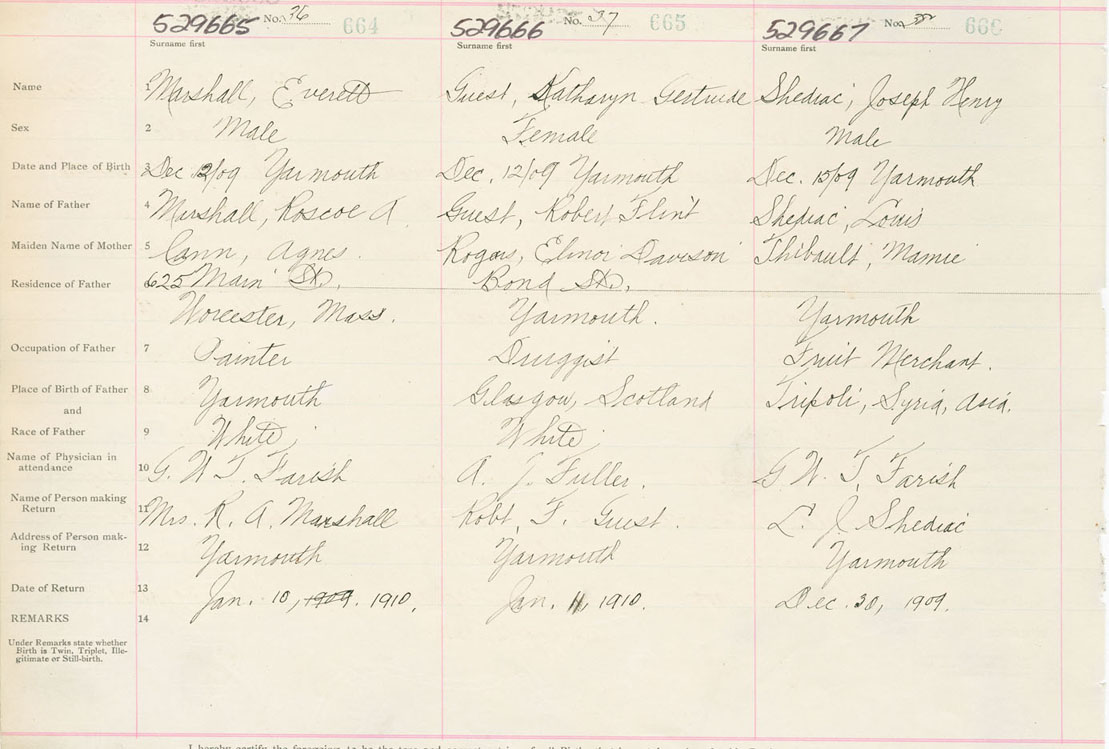 529665 No. 36 664 529666 No. 37 665 529667 No. 38 666
Surname first Surname first Surname first
Name 1 Marshall, Everett Guest, Katharyn Gertrude Shediac, Joseph Henry
Sex 2 Male Female Male
Date and Place of Birth 3 Dec 12/09 Yarmouth Dec. 12/09 Yarmouth Dec. 15/09 Yarmouth
Name of Father 4 Marshall, Roscoe A Guest, Robert Flint Shediac, Louis
Maiden Name of Mother 5 Cann, Agnes. Rogers, Elinor Davison Thibault, Mamie
Residence of Father 625 Main St. Bond St.
Worcester, Mass. Yarmouth. Yarmouth
Occupation of Father 7 Painter Druggist Fruit Merchant.
Place of Birth of Father 8 Yarmouth Glasgow, Scotland Tripoli, Syria, Asia.
and
Race of Father 9 White White
Name of Physician in
attendance 10 G. W. T. Farish A. J. Fuller. G. W. T. Farish
Name of Person making
Return 11 Mrs. R. A. Marshall Robt. F. Guest. L. J. Shediac
Address of Person mak-
ing Return 12 Yarmouth Yarmouth Yarmouth
Date of Return 13 Jan. 10, 1909. 1910. Jan. 11, 1910. Dec. 30, 1909.
REMARKS 14
Under Remarks state whether
Birth is Twin, Triplet, Ille-
gitimate or Still-birth.